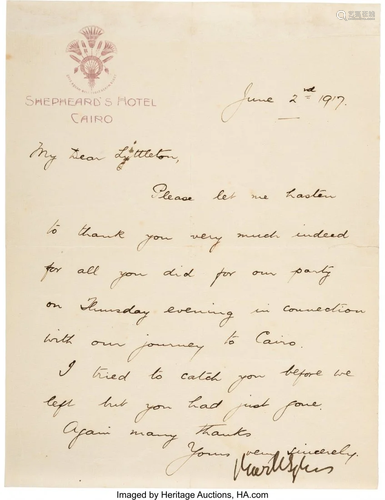 SHEPHEARD'S HOTEL
CAIRO
June 2nd 1917.
My Dear Lyttleton,
Please let me hasten
to thank you very much indeed
for all you did for our party
on Thursday evening in connection
with our journey to Cairo.
I tried to catch you before we
left but you had just gone.
Again many thanks
Yours very sincerely
Mark Sykes
Imaged by Heritage Auctions, HA.com